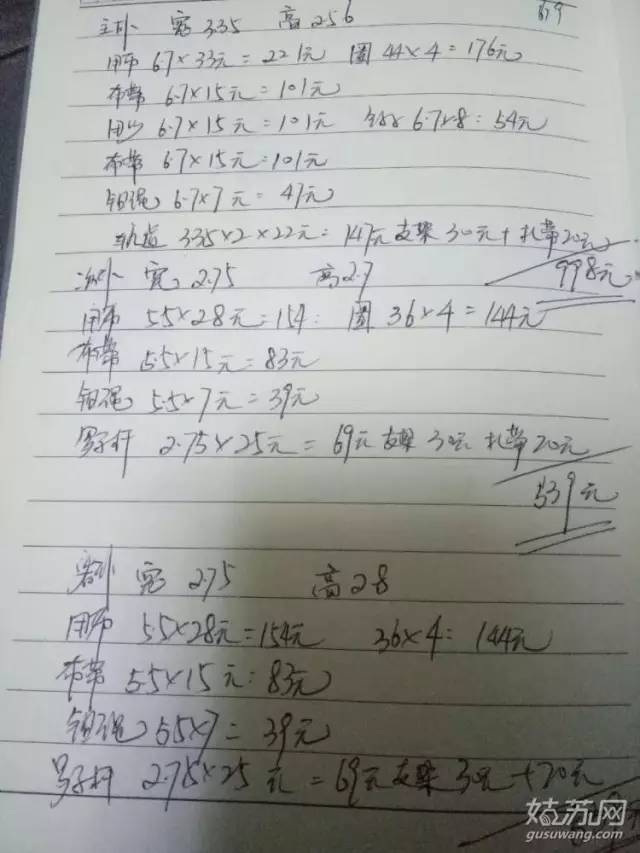 主卧 宽 335 高256
用布 6.7×33元=221元 圈 44×4=176元
布带 6.7×15元=101元
用纱 6.7×15元=101元 6.7×8=54元
布带 6.7×15元=101元
铅绳 6.7×7元=47元
轨道 335×2×22元=147元 支架30元+扎带20元
998元
次卧 宽 2.75 高2.7
用布 5.5×28元=154 圈 36×4=144元
布带 5.5×15元=83元
铅绳 5.5×7元=39元
罗马杆 2.75×25元=69元 支架30元 扎带20元
539元
客卧 宽 2.75 高2.8
用布 5.5×28元=154元 36×4=144元
布带 5.5×15元=83元
铅绳 5.5×7=39元
罗马杆 2.75×25元=69元 支架30元+20元
姑苏网
gusuwang.com